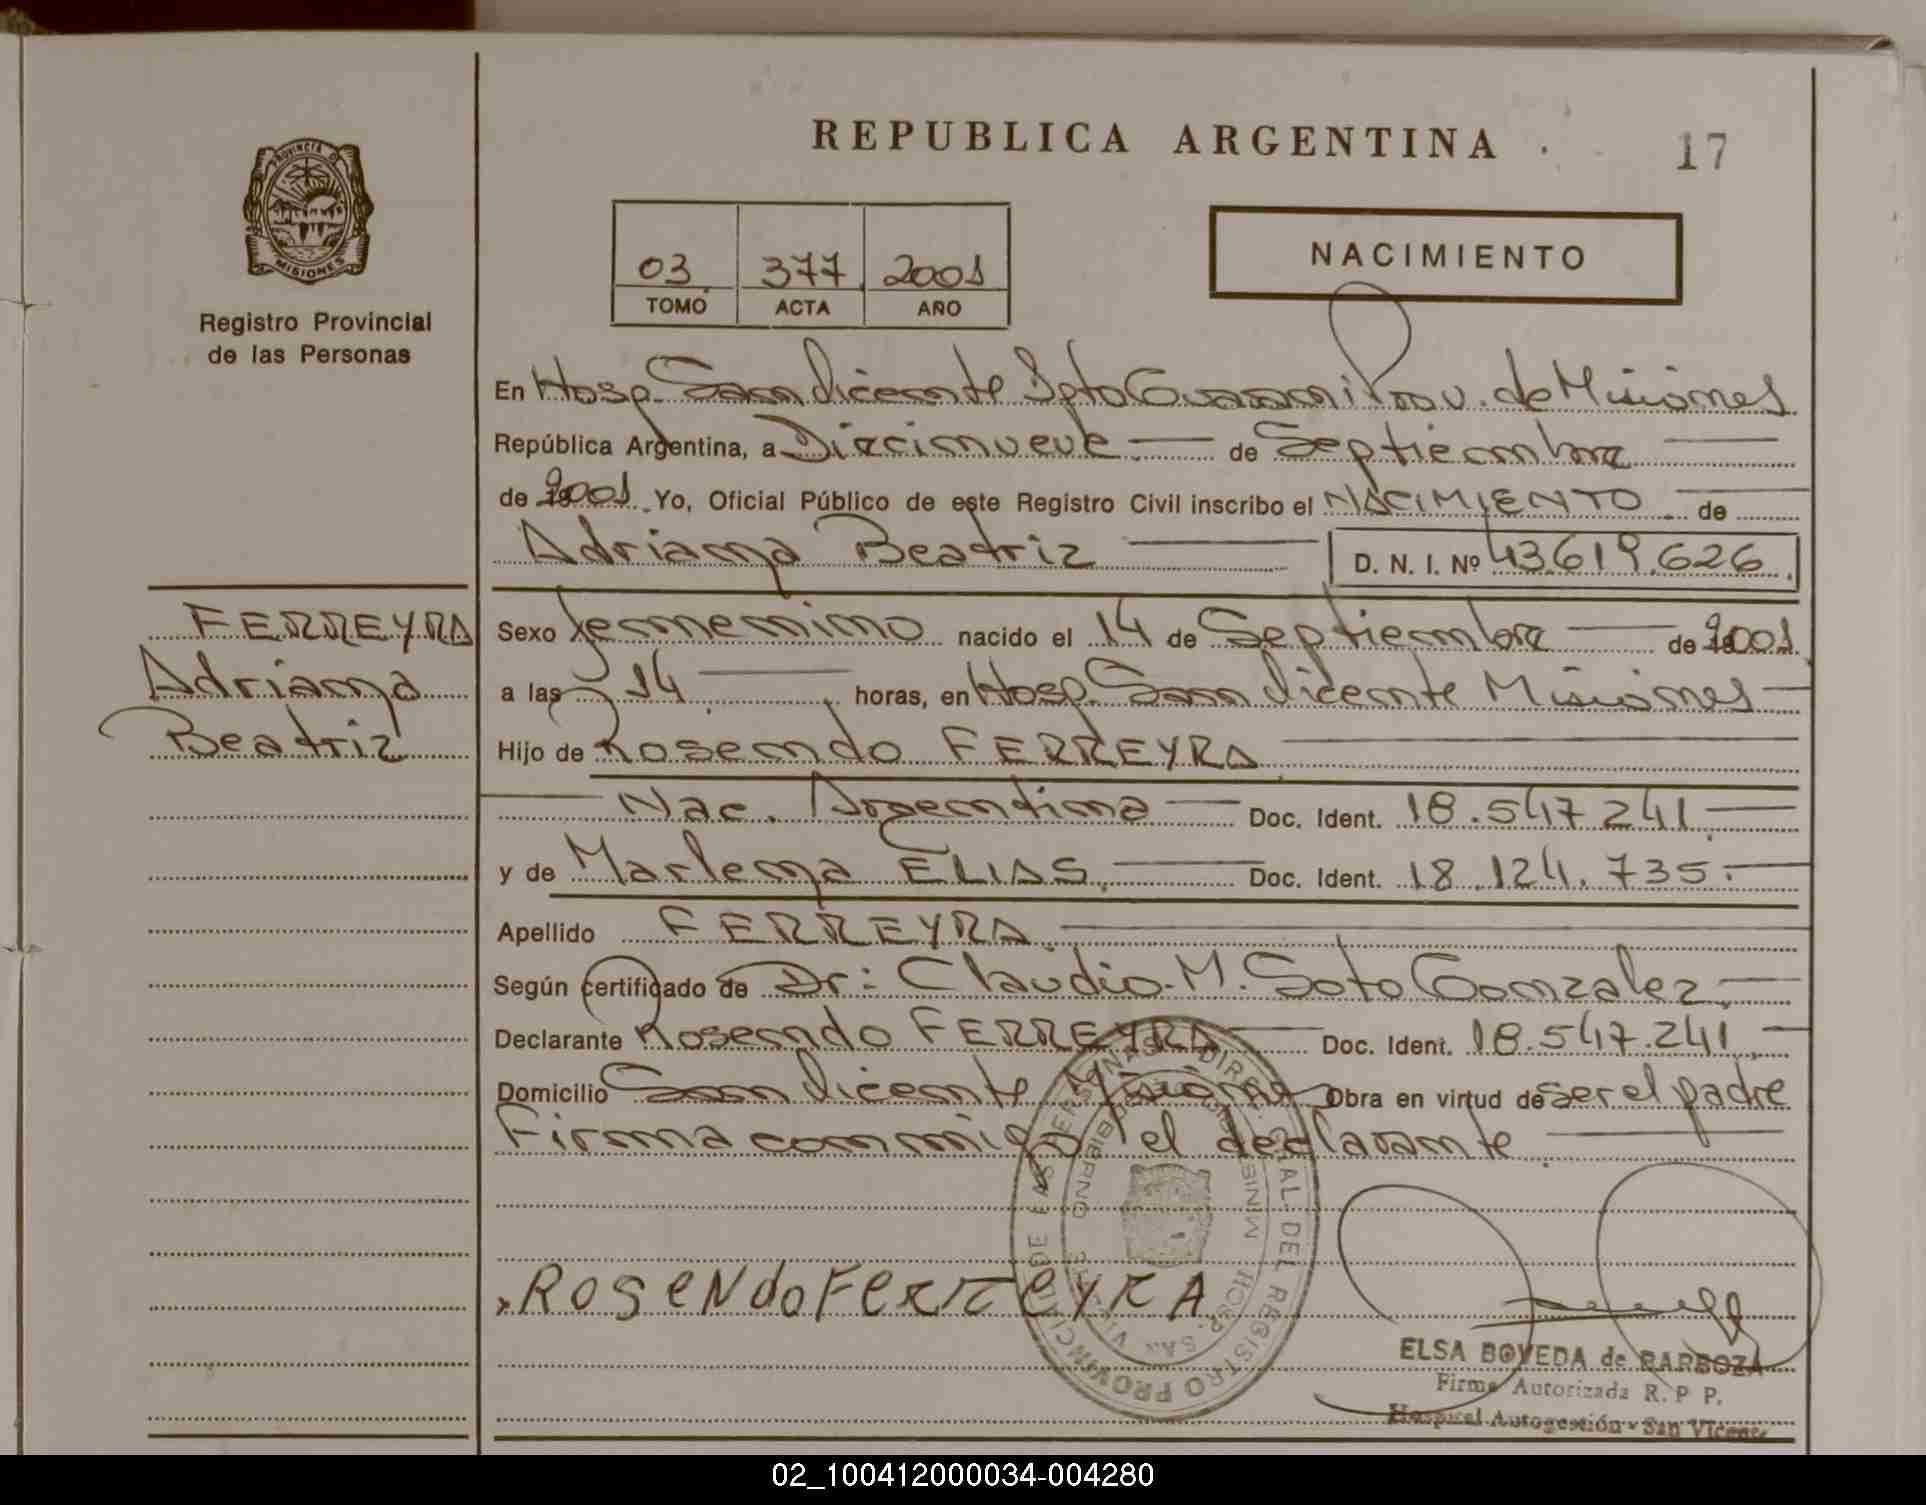 REPUBLICA ARGENTINA
17
PROVINCIA D
MISIONES
Registro Provincial
de las Personas
03 377 2001
TOMO ACTA AÑO
NACIMIENTO
En Hosp. San Vicente Dpto Guarani Prov. de Misiones
República Argentina, a Diecinueve de Septiembre
de 2001 Yo, Oficial Público de este Registro Civil inscribo el NACIMIENTO de
Adriana Beatriz D. N. I. Nº 43.619.626
FERREYRA
Adriana
Beatriz
Sexo femenino nacido el 14 de Septiembre de 2001
a las 14 horas, en Hosp. San Vicente Misiones
Hijo de Rosendo FERREYRA
Nac. Argentina Doc. Ident. 18.547.241
y de Marlena ELIAS. Doc. Ident. 18.124.735.
Apellido FERREYRA
Según certificado de Dr: Claudio M. Soto Gonzalez
Declarante Rosendo FERREYRA Doc. Ident. 18.547.241
Domicilio San Vicente Misiones Obra en virtud de ser el padre
Firma conmigo el declarante
Rosendo Ferreyra
DEL REGISTRO PROVINCIAL DE LAS PERSONAS
HOSP. SAN
ELSA BOVEDA de BARBOZA
Firma Autorizada R. P P.
Hospital Autogestión - San Vicente
02_100412000034-004280